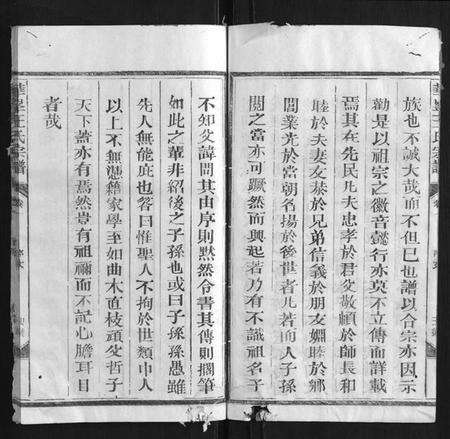 族也不誠大哉而不但已也譜以合宗亦因示
勸是以祖宗之徽音懿行亦莫不立傳而詳載
焉其在先民凡夫忠孝於君父敬順於師長和
睦於夫妻友恭於兄弟信義於朋友婣睦於鄉
閭業光於當朝名揚於後世者凡若而人子孫
閱之當亦可蹶然而興起若乃有不識祖名子
不知父諱問其由序則默然令書其傳則擱筆
如此之輩非紹後之子孫也或曰子孫孫愚雖
先人無能庇也答曰惟聖人不拘於世類中人
以上不無憑藉家學至如曲木直枝頑父哲子
天下蓋亦有焉然豈有祖禰而不記心膽耳目
者哉
王氏宗譜